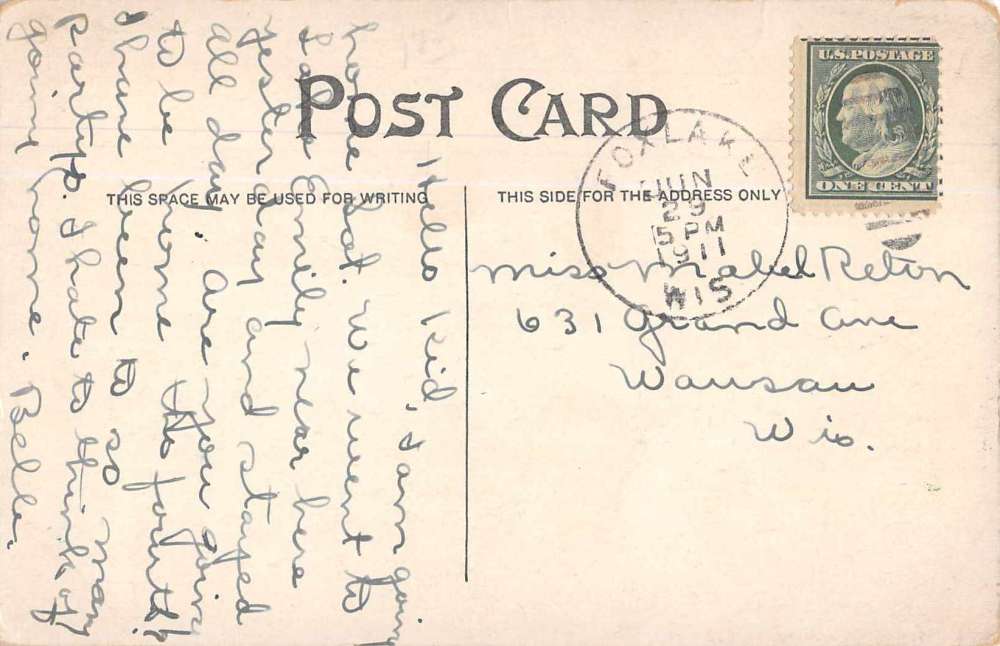 POST CARD
THIS SPACE MAY BE USED FOR WRITING
THIS SIDE FOR THE ADDRESS ONLY
U.S. POSTAGE
ONE CENT
FOX LAKE
JUN
29
5 PM
1911
WIS
Miss Mabel Reton
631 Grand Ave
Wausau
Wis.
Hello Kid, I am going
home Sat. We went to
Lake Emily near here
yesterday and stayed
all day. Are you going
to be home the fourth?
I have been to so many
partys. I hate to think of
going home. Belle.